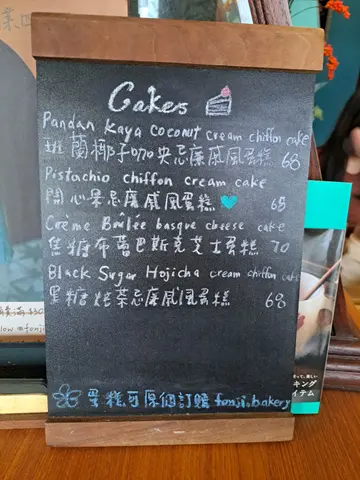 Cakes
Pandan Kaya coconut cream chiffon cake
班蘭椰子咖央忌廉戚風蛋糕 68
Pistachio chiffon cream cake
開心果忌廉戚風蛋糕 68
Crème Bûlée basque cheese cake
焦糖布蕾巴斯克芝士蛋糕 70
Black Sugar Hojicha cream chiffon cake
黑糖焙茶忌廉戚風蛋糕 68
蛋糕可原個訂購 fonji.bakery
キング
イテム